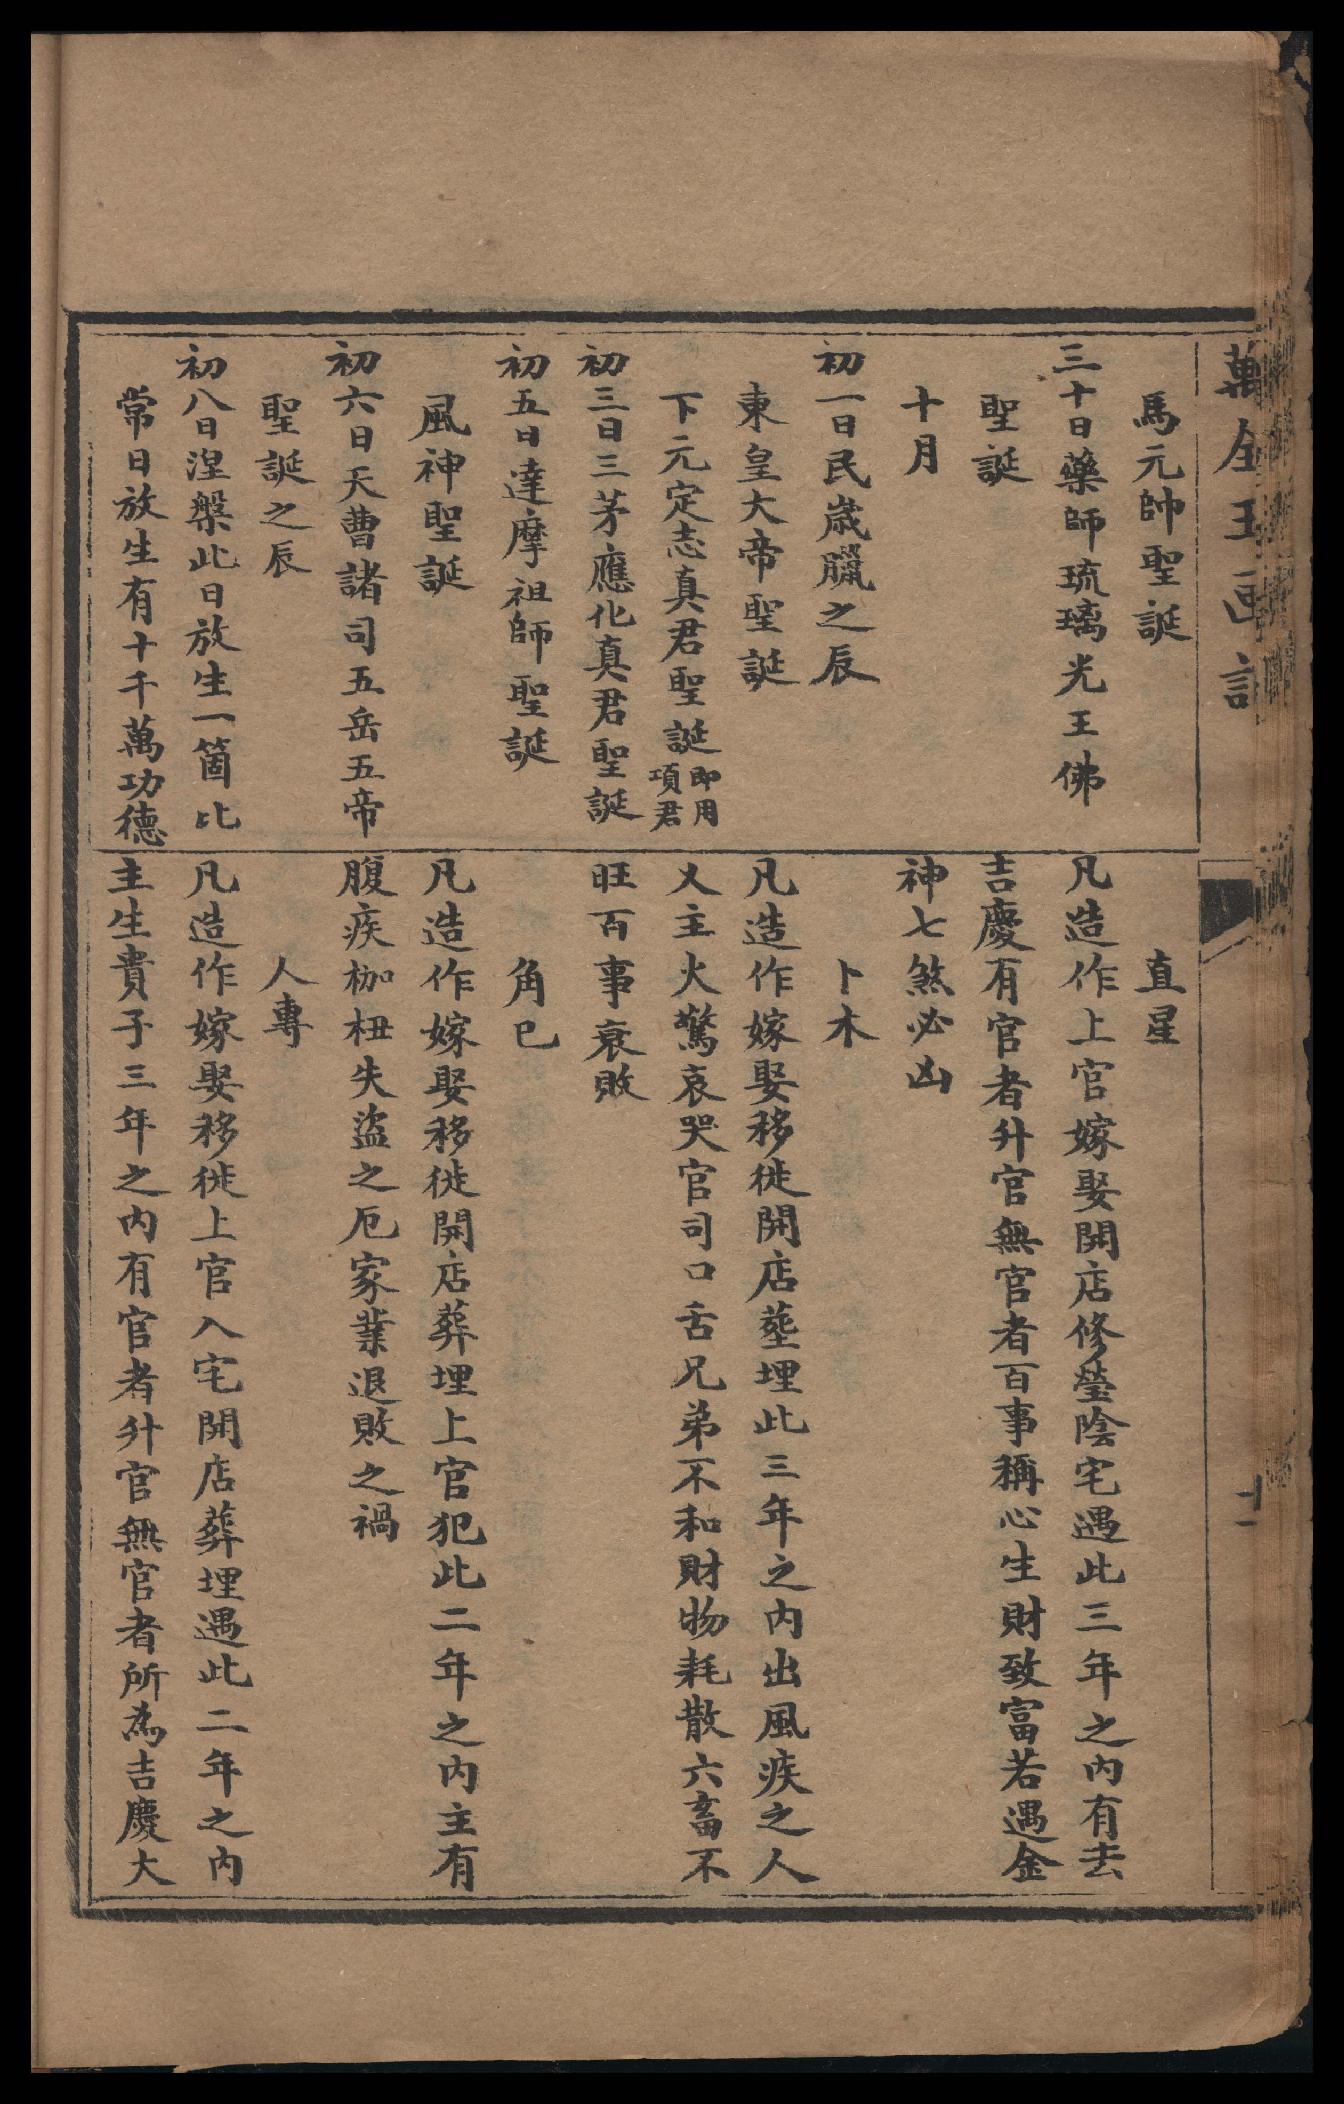 萬全玉匣記
馬元帥聖誕
三十日藥師琉璃光王佛
聖誕
十月
初一日民歲臘之辰
東皇大帝聖誕
下元定志真君聖誕即用項君
初三日三茅應化真君聖誕
初五日達摩祖師聖誕
風神聖誕
初六日天曹諸司五岳五帝
聖誕之辰
初八日涅槃此日放生一箇比
常日放生有十千萬功德
直星
凡造作上官嫁娶開店修塋陰宅遇此三年之內有去
吉慶有官者升官無官者百事稱心生財致富若遇金
神七煞必凶
卜木
凡造作嫁娶移徙開店塟埋此三年之內出風疾之人
乂主火驚哀哭官司口舌兄弟不和財物耗散六畜不
旺百事衰敗
角巳
凡造作嫁娶移徙開店葬埋上官犯此二年之內主有
腹疾枷杻失盜之厄家業退敗之禍
人專
凡造作嫁娶移徙上官入宅開店葬埋遇此二年之內
主生貴子三年之內有官者升官無官者所為吉慶大
十一